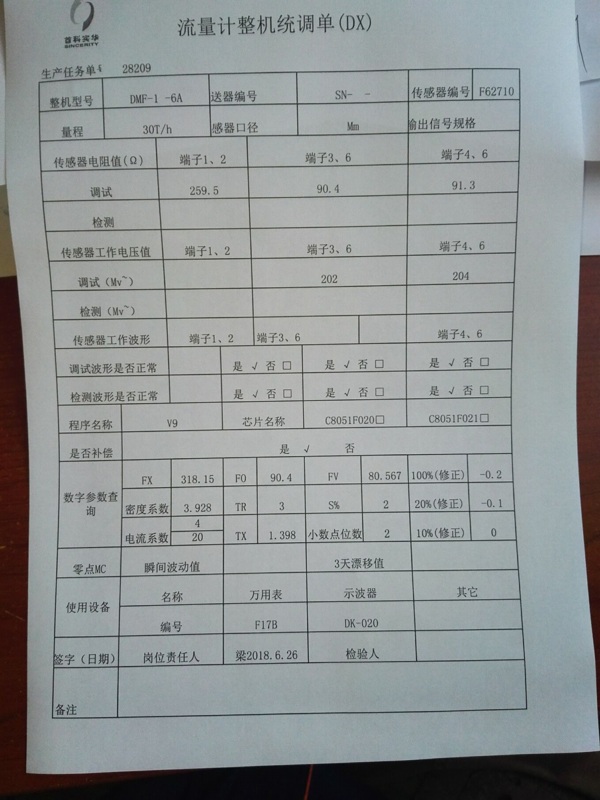 首科实华
SINCERITY
流量计整机统调单(DX)
生产任务单 28209
整机型号 DMF-1 -6A 送器编号 SN- - 传感器编号 F62710
量程 30T/h 感器口径 Mm 输出信号规格
传感器电阻值(Ω) 端子1、2 端子3、6 端子4、6
调试 259.5 90.4 91.3
检测
传感器工作电压值 端子1、2 端子3、6 端子4、6
调试(Mv~) 202 204
检测(Mv~)
传感器工作波形 端子1、2 端子3、6 端子4、6
调试波形是否正常 是 √ 否 □ 是 √ 否 □ 是 √ 否 □
检测波形是否正常 是 √ 否 □ 是 √ 否 □ 是 √ 否 □
程序名称 V9 芯片名称 C8051F020□ C8051F021□
是否补偿 是 √ 否
数字参数查询 FX 318.15 FO 90.4 FV 80.567 100%(修正) -0.2
密度系数 3.928 TR 3 S% 2 20%(修正) -0.1
电流系数 4 20 TX 1.398 小数点位数 2 10%(修正) 0
零点MC 瞬间波动值 3天漂移值
使用设备 名称 万用表 示波器 其它
编号 F17B DK-020
签字(日期) 岗位责任人 梁2018.6.26 检验人
备注